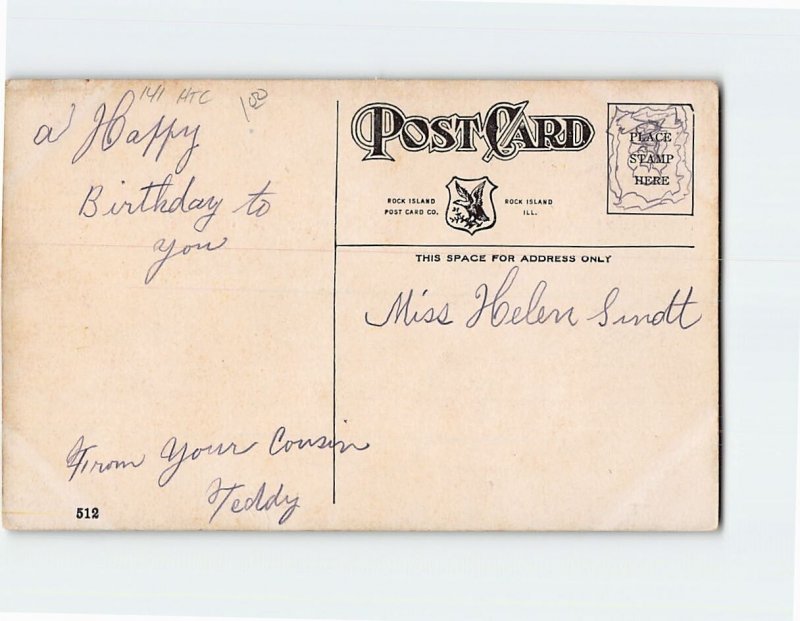 141 HTC
1.00
a Happy
Birthday to
you
From Your Cousin
Teddy
512
POST CARD
ROCK ISLAND
POST CARD CO.
ROCK ISLAND
ILL.
PLACE
STAMP
HERE
THIS SPACE FOR ADDRESS ONLY
Miss Helen Sindt